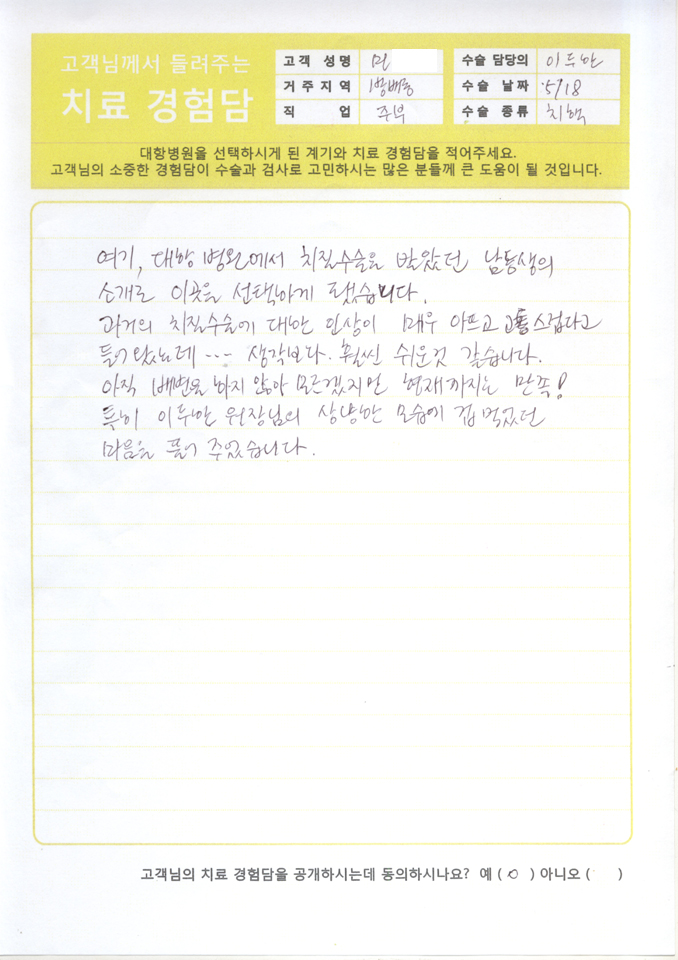 고객님께서 들려주는
치료 경험담
고객 성명 민
거주지역 방배동
직 업 주부
수술 담당의 이두한
수술 날짜 5/18
수술 종류 치핵
대항병원을 선택하시게 된 계기와 치료 경험담을 적어주세요.
고객님의 소중한 경험담이 수술과 검사로 고민하시는 많은 분들께 큰 도움이 될 것입니다.
여기, 대항병원에서 치질수술을 받았던 남동생의
소개로 이곳을 선택하게 됐습니다.
과거의 치질수술에 대한 인상이 매우 아프고 고통스럽다고
들어왔는데 --- 생각보다. 훨씬 쉬운것 같습니다.
아직 배변을 하지 않아 모르겠지만 현재까지는 만족!
특히 이두한 원장님의 상냥한 모습에 겁먹었던
마음을 풀어 주었습니다.
고객님의 치료 경험담을 공개하시는데 동의하시나요? 예 ( O ) 아니오 ( )